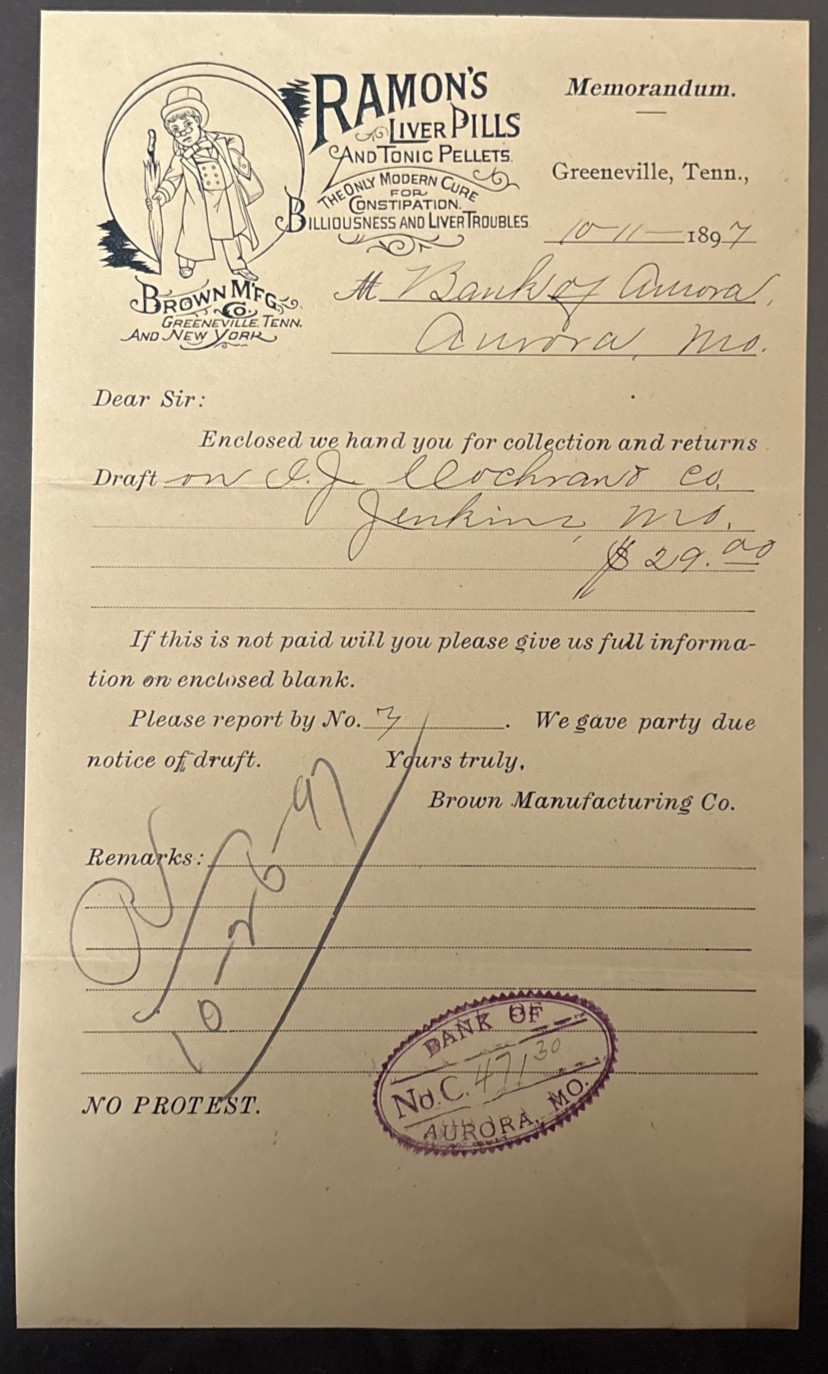 RAMON'S
LIVER PILLS
AND TONIC PELLETS.
THE ONLY MODERN CURE
FOR
CONSTIPATION.
BILLIOUSNESS AND LIVER TROUBLES
BROWN M'F'G. CO.
GREENEVILLE. TENN.
AND NEW YORK
Memorandum.
Greeneville, Tenn.,
10-11-1897
M Bank of Aurora,
Aurora, Mo.
Dear Sir:
Enclosed we hand you for collection and returns
Draft on J. Cochran & Co.
Jenkins, Mo.
$29.00
If this is not paid will you please give us full informa-
tion on enclosed blank.
Please report by No. 7. We gave party due
notice of draft. Yours truly,
Brown Manufacturing Co.
Remarks:
10-26-97
NO PROTEST.
BANK OF
No. C. 47130
AURORA, MO.